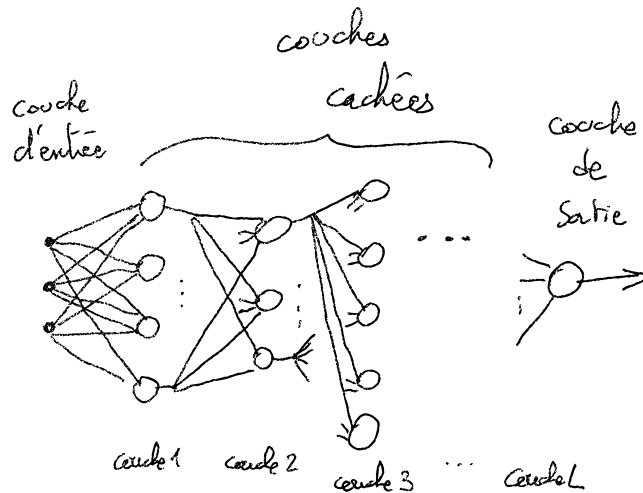 couches
cachées
couche
d'entrée
couche
de
Sortie
couche 1
couche 2
couche 3
...
couche L